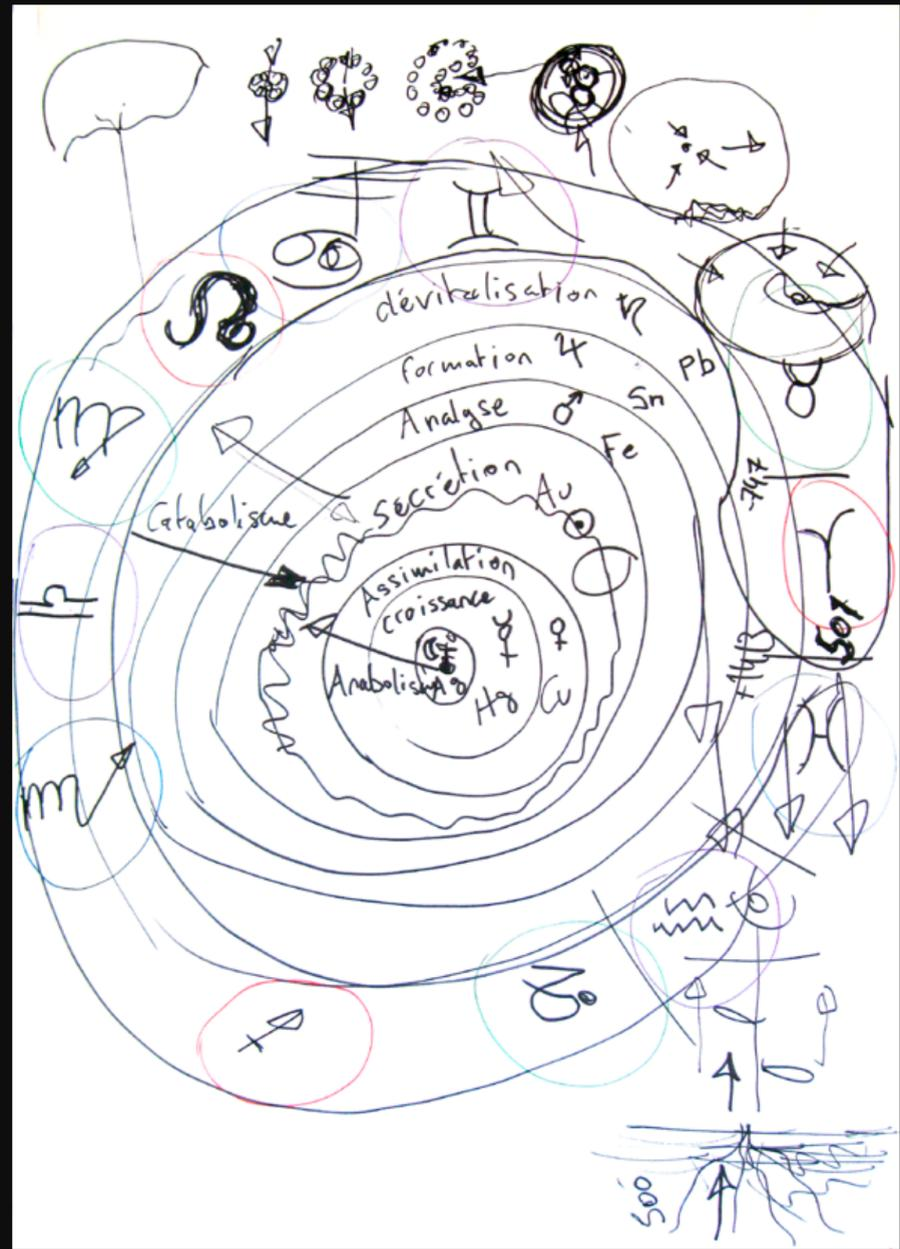 dévitalisation ♄
formation ♃
Pb
Analyse ♂
Sn
Fe
Sécrétion
Au ☉
-747
Catabolisme
Assimilation
croissance ☿ ♀
Anabolisme Ag
Hg Cu
507
+1413
500